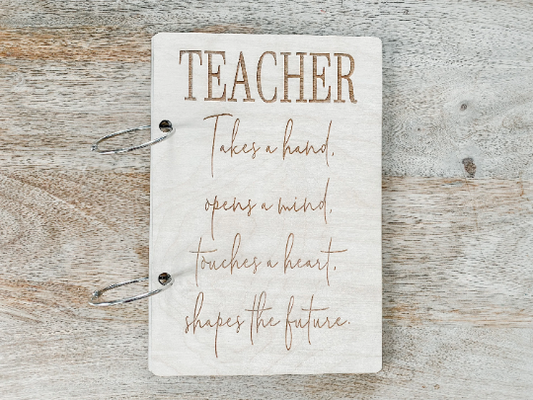 TEACHER
Takes a hand,
opens a mind,
touches a heart,
shapes the future.